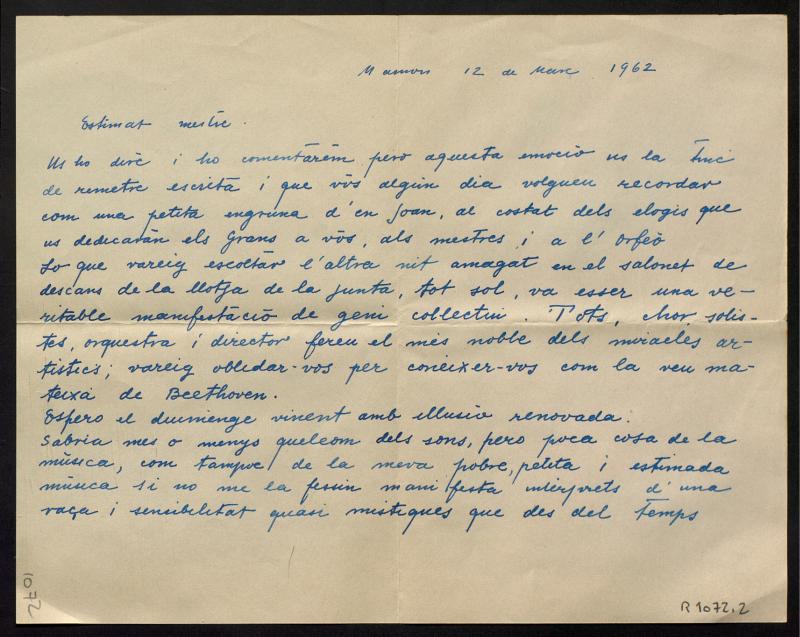 Mamou 12 de Març 1962
Estimat mestre.
Us ho diré i ho comentarém però aquesta emoció us la tinc
de remetre escrita i que vòs algún dia volgueu recordar
com una petita engruna d'en Joan, al costat dels elogis que
us dedicarán els Grans a vòs, als mestres i a l'Orfeó
Lo que vareig escoltár l'altra nit amagat en el salonet de
descans de la llotja de la Junta, tot sol, va esser una ve-
ritable manifestació de geni collectiu. Tots, chor, solis-
tes, orquestra i director fereu el més noble dels miracles ar-
tistics; vareig oblidar-vos per conèixer-vos com la veu ma-
teixa de Beethoven.
Espero el diumenge vinent amb illusió renovada.
Sabria mes o menys quelcom dels sons, pero poca cosa de la
mùsica, com tampoc de la meva pobre, petita i estimada
mùsica si no me la fessin manifesta intérprets d'una
raça i sensibilitat quasi mistiques que des del temps
1072
R 1072,2